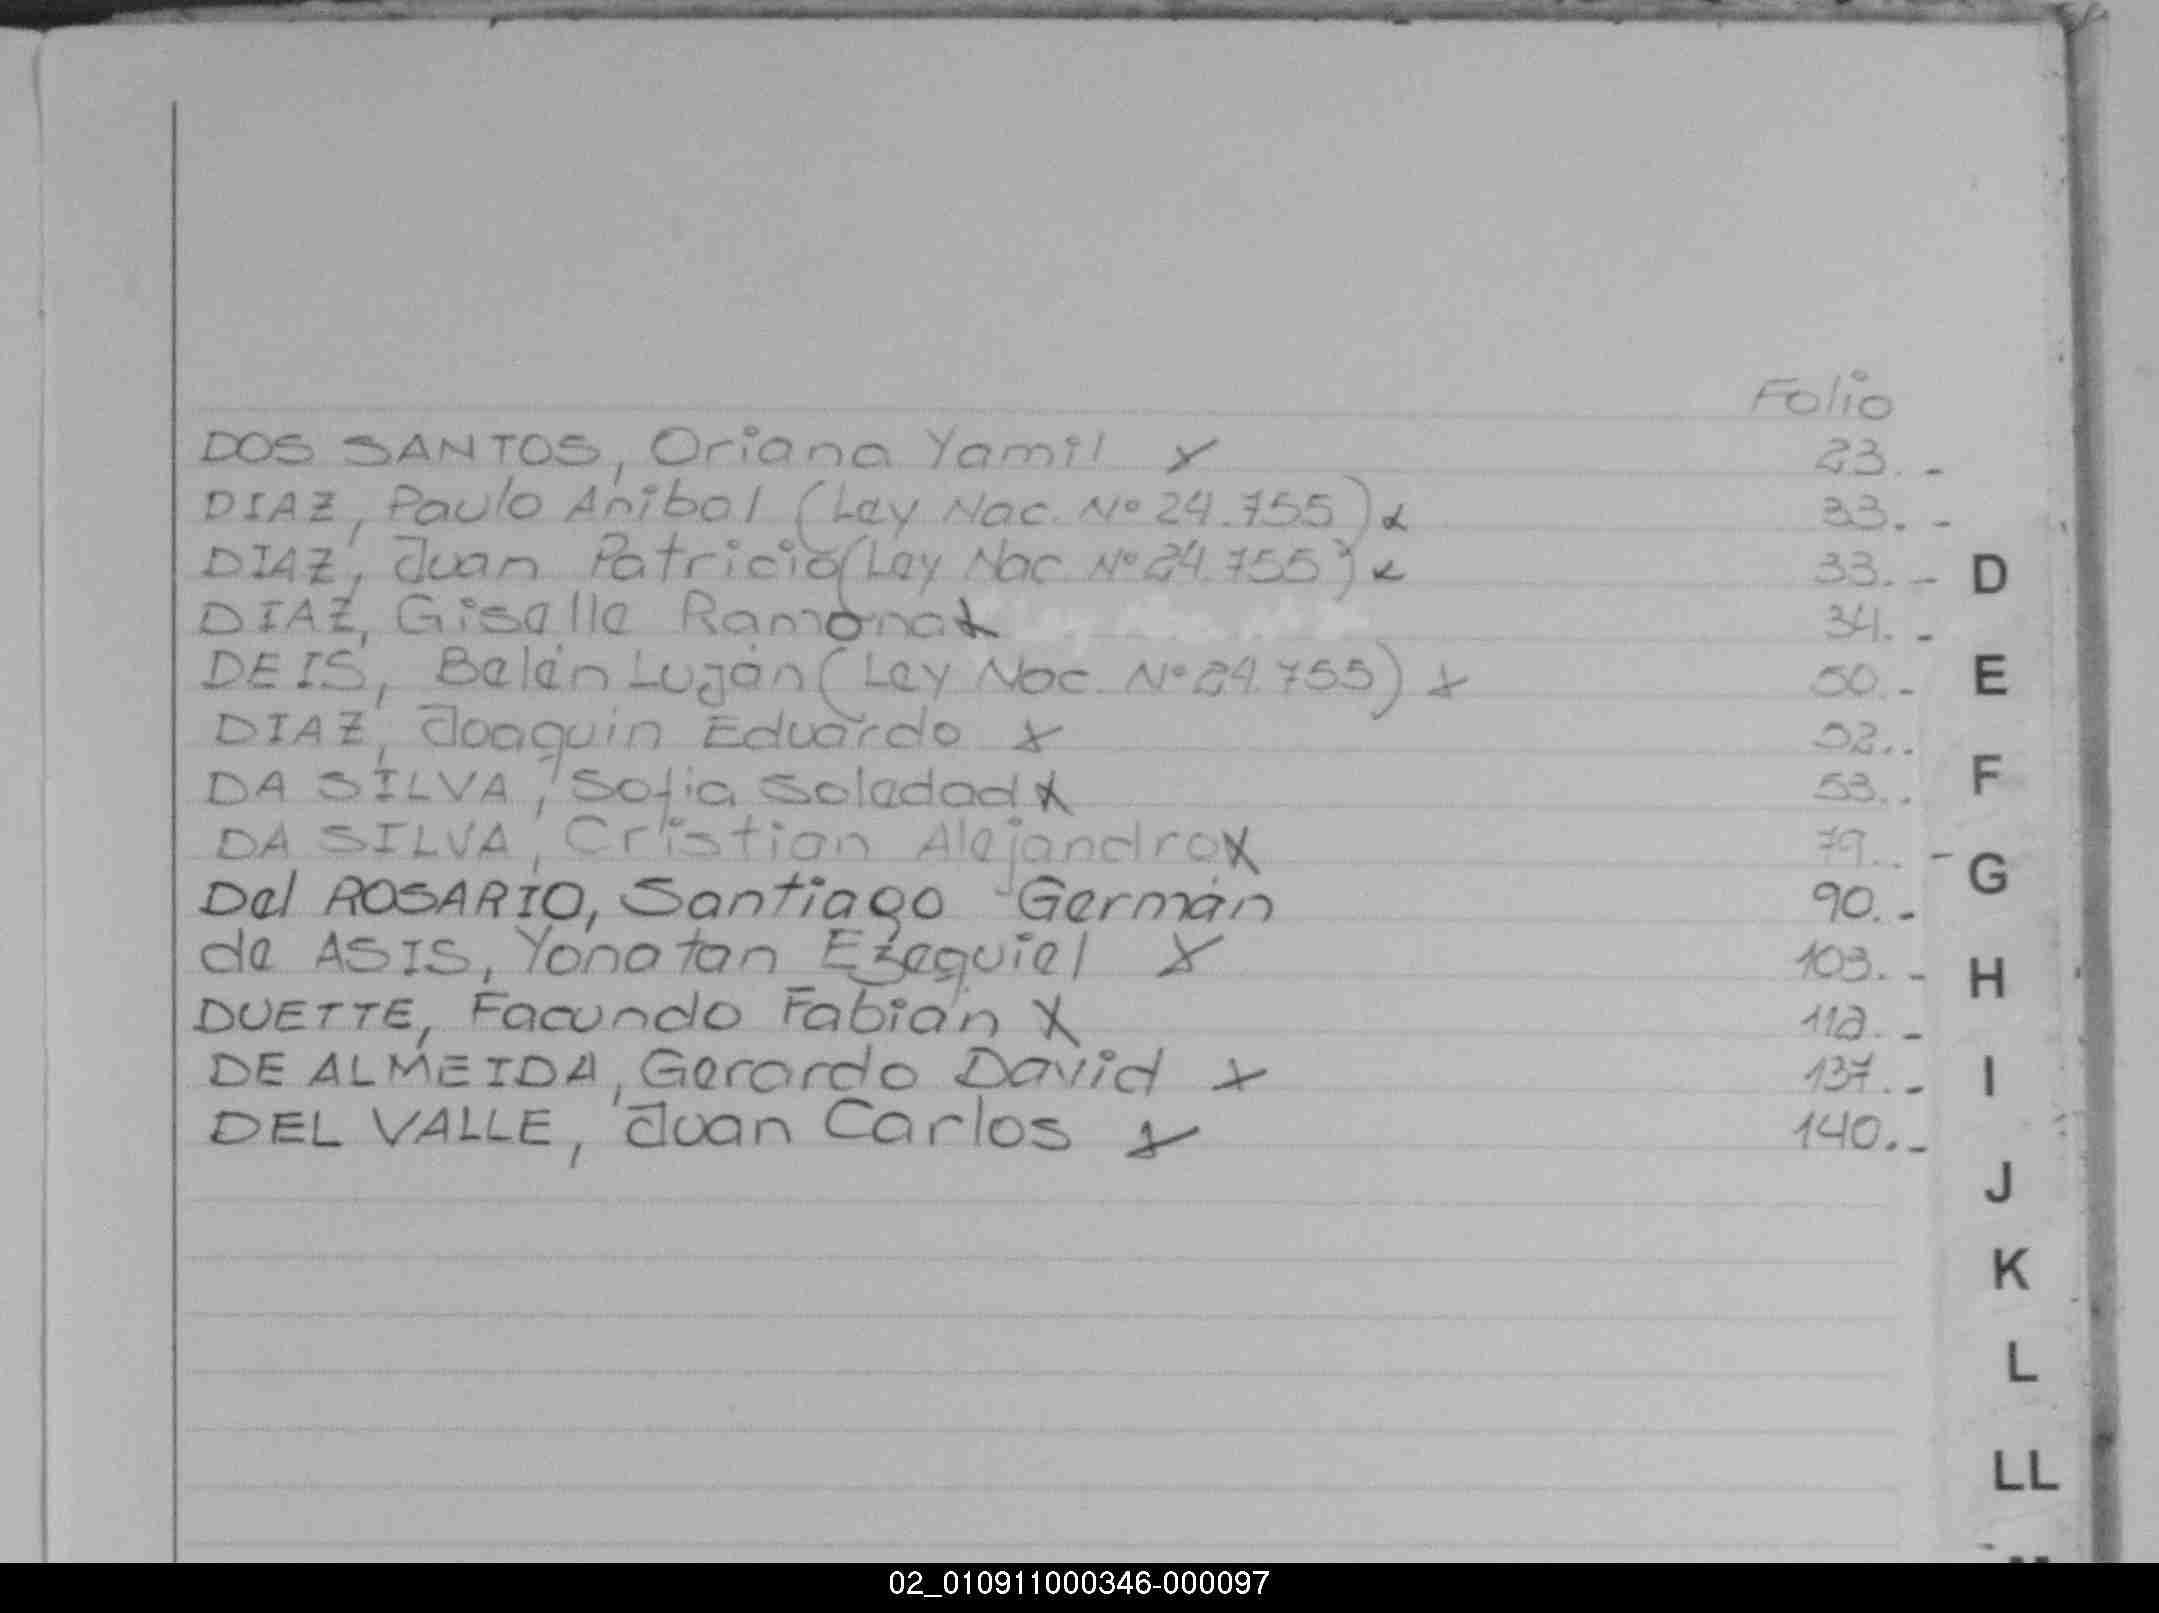 Folio
DOS SANTOS, Oriana Yamil x 23.-
DIAZ, Paulo Anibal (Ley Nac. Nº 24.755) x 33.-
DIAZ, Juan Patricio (Ley Nac. Nº 24.755) x 33.-
DIAZ, Giselle Ramona x 34.-
DEIS, Belén Luján (Ley Nac. Nº 24.755) x 50.-
DIAZ, Joaquin Eduardo x 52..
DA SILVA, Sofia Soledad x 53..
DA SILVA, Cristian Alejandro x 79..-
Del ROSARIO, Santiago Germán 90.-
de ASIS, Yonatan Ezequiel x 103.-
DUETTE, Facundo Fabián x 112.-
DE ALMEIDA, Gerardo David x 137.-
DEL VALLE, Juan Carlos x 140.-
D
E
F
G
H
I
J
K
L
LL
02_010911000346-000097